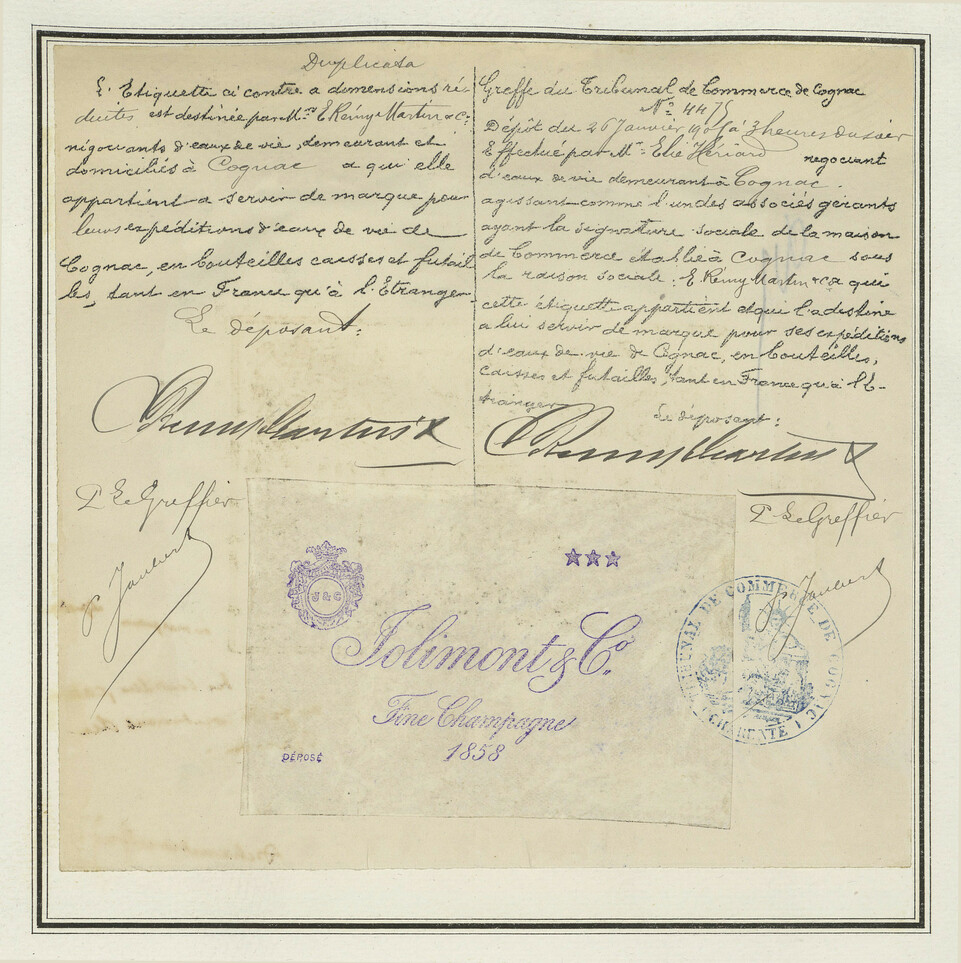 Duplicata
L'Etiquette ci contre a dimensions ré-
duites est destinée par M.rs E Rémy Martin & Cie
négociants d'eaux de vie, demeurant et
domiciliés à Cognac a qui elle
appartient a servir de marque pour
leurs expéditions d'eaux de vie de
Cognac, en bouteilles caisses et futail
les, tant en France qu'à l'Etranger
Le déposant:
E Remy Martin & Co
P. Le Greffier
Joubert
Greffe du Tribunal de Commerce de Cognac
No 4475
Dépôt du 26 Janvier à 3 heures du soir
Effectué par Mr Elie Hériard négociant
d'eaux de vie demeurant à Cognac.
agissant comme l'un des associés gérants
ayant la signature sociale de la maison
de Commerce établie à Cognac sous
la raison sociale: E Rémy Martin & Co a qui
cette étiquette appartient et qui l'a destine
a lui servir de marque pour ses expéditions
d'eaux de vie de Cognac, en bouteilles,
caisses et futailles, tant en France qu'à l'E-
tranger
Le déposant:
E Remy Martin & Co
P. Le Greffier
Joubert
J & C
Jolimont & Co
Fine Champagne
1858
DÉPOSÉ
TRIBUNAL DE COMMERCE DE COGNAC
(CHARENTE)